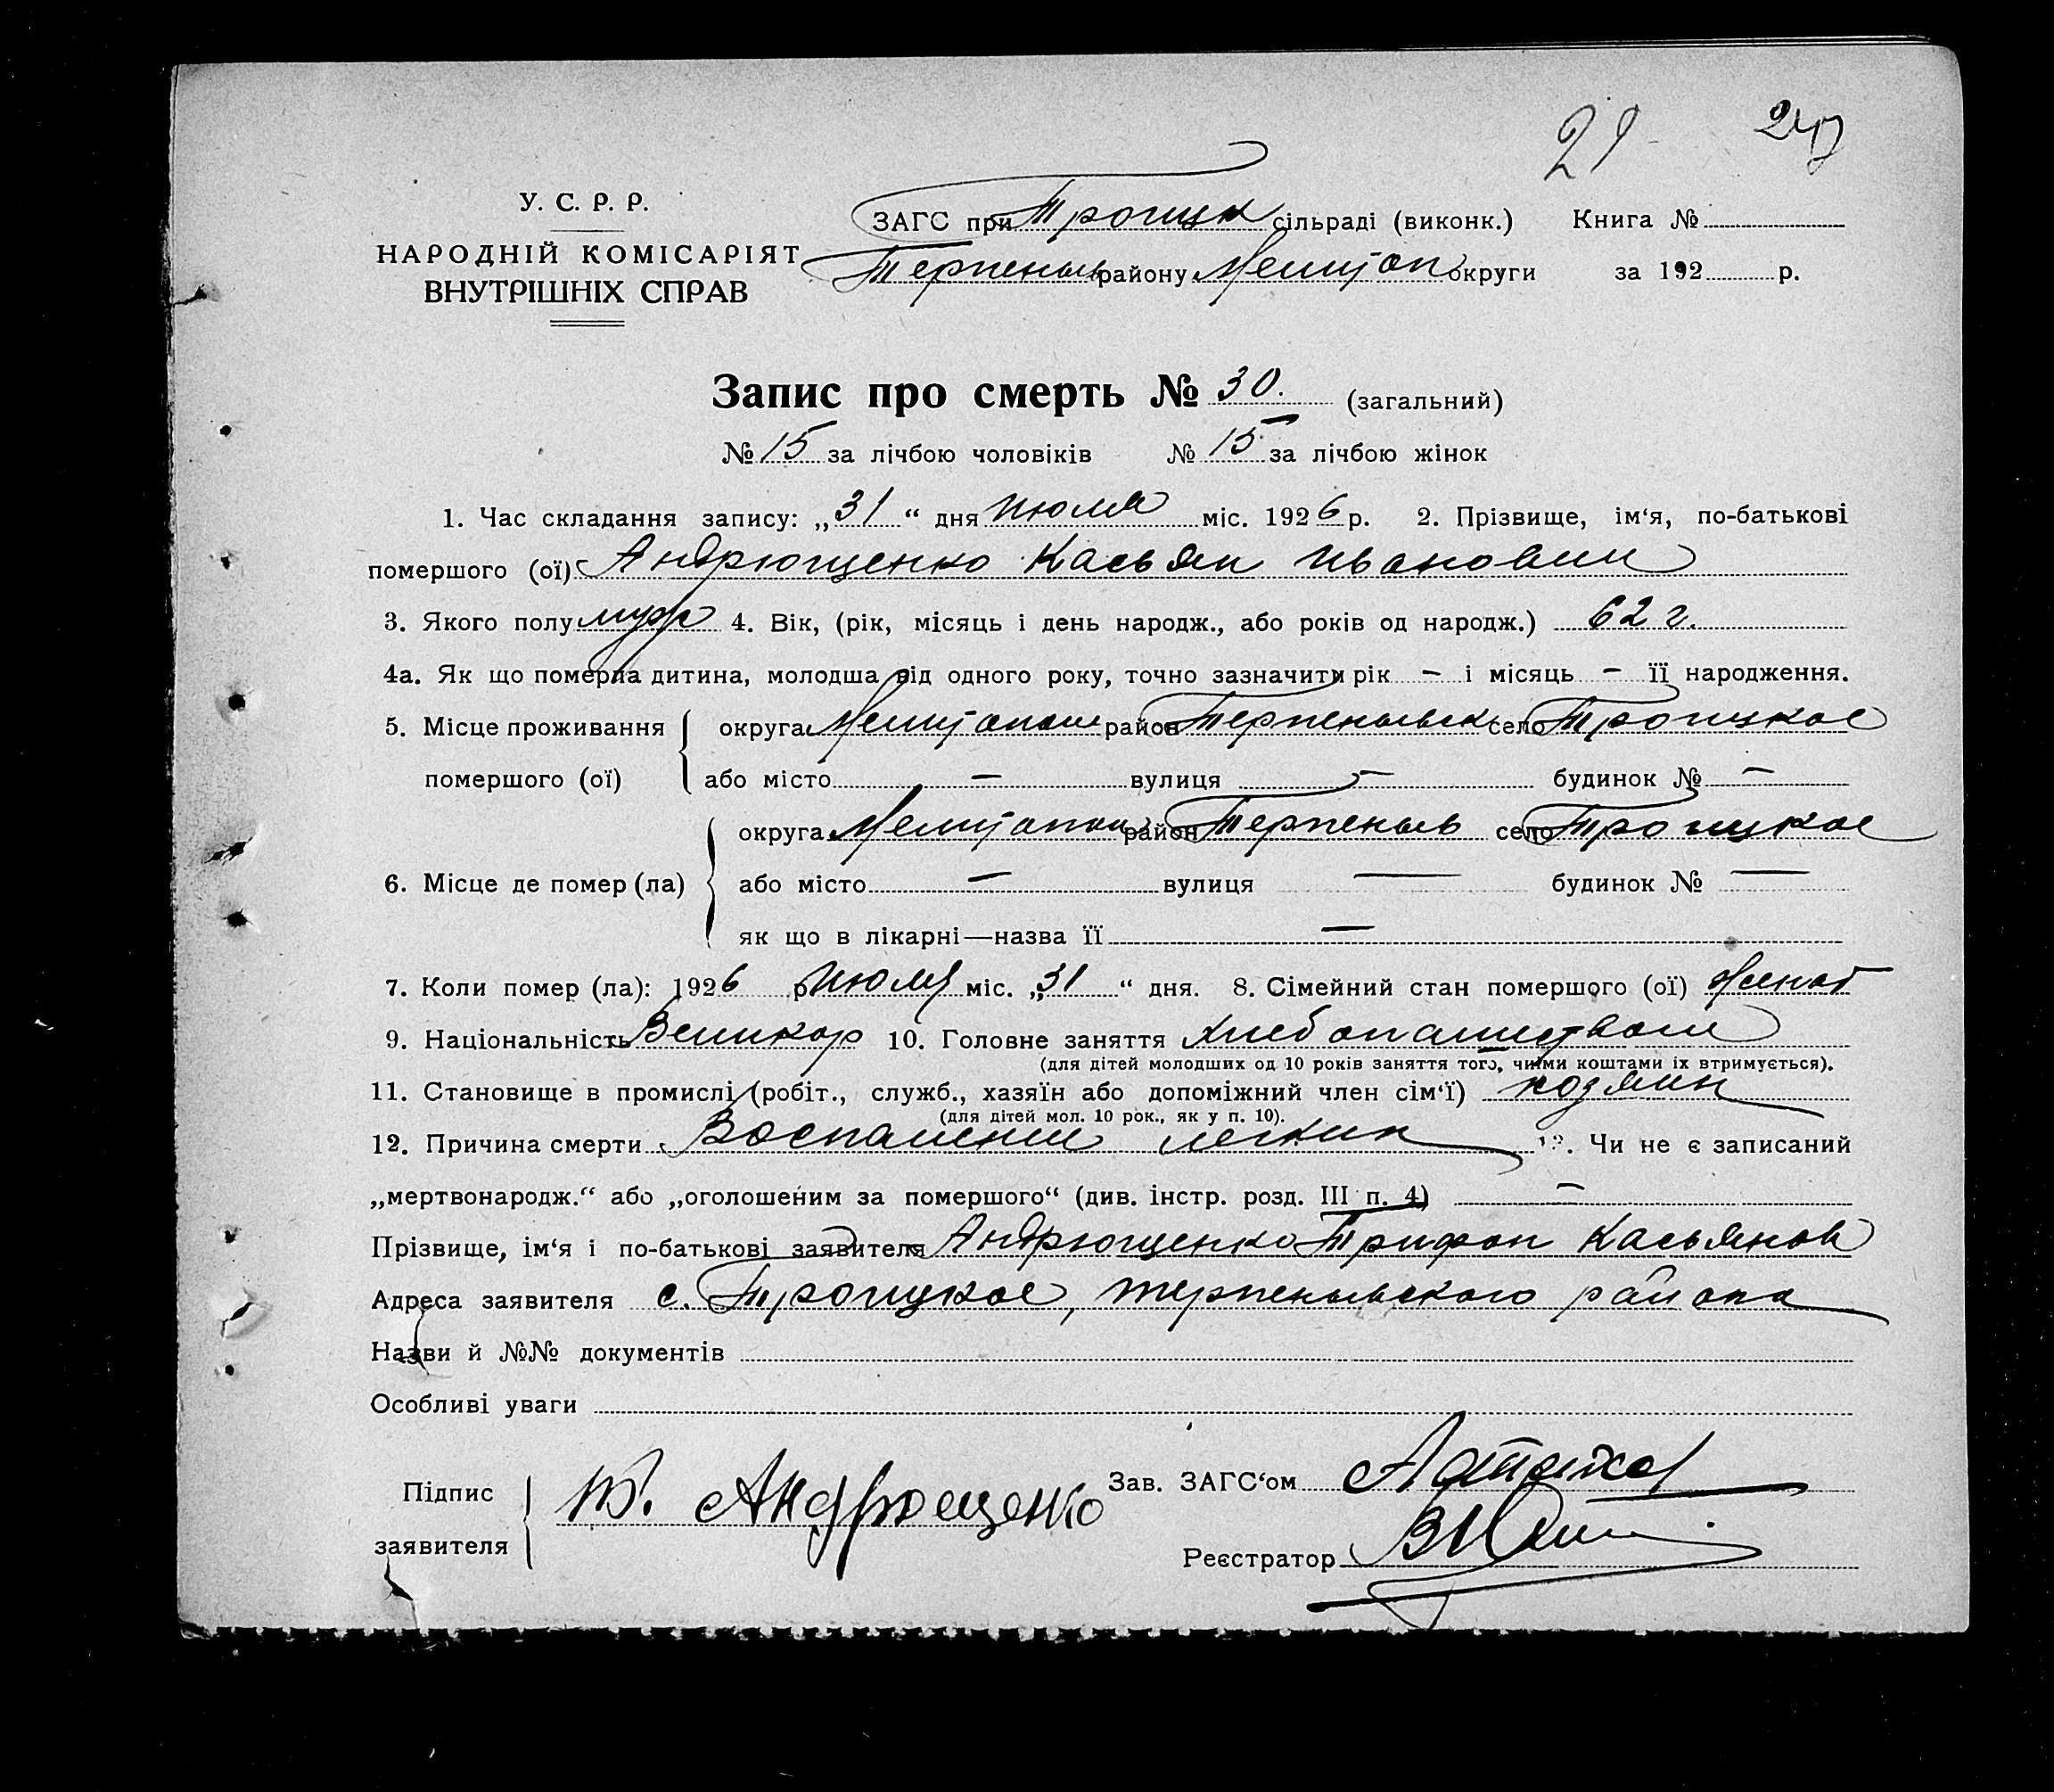 29 24
У. С. Р. Р.
НАРОДНІЙ КОМІСАРІЯТ
ВНУТРІШНІХ СПРАВ
ЗАГС при Троицк сільраді (виконк.) Книга №
Терпеньев району Мелитоп округи за 192 р.
Запис про смерть № 30. (загальний)
№ 15 за лічбою чоловіків № 15 за лічбою жінок
1. Час складання запису: „31“ дня июля міс. 1926 р. 2. Прізвище, ім‘я, по-батькові
помершого (ої) Андрющенко Касьян Иванович
3. Якого полу муж 4. Вік, (рік, місяць і день народж., або років од народж.) 62 г.
4а. Як що померла дитина, молодша від одного року, точно зазначити рік – і місяць – її народження.
5. Місце проживання округа Мелитопол район Терпеньевск село Троицкое
помершого (ої) або місто — вулиця — будинок № —
округа Мелитопол район Терпеньев село Троицкое
6. Місце де помер (ла) або місто — вулиця — будинок № —
як що в лікарні—назва її —
7. Коли помер (ла): 1926 р. июля міс. „31“ дня. 8. Сімейний стан помершого (ої) женат
9. Національність Великор 10. Головне заняття хлебопашеством
(для дітей молодших од 10 років заняття того, чиїми коштами їх втримується).
11. Становище в промислі (робіт., служб., хазяїн або допоміжний член сім‘ї) хозяин
(для дітей мол. 10 рок., як у п. 10).
12. Причина смерти Воспаление легких 13. Чи не є записаний
„мертвонародж.“ або „оголошеним за помершого“ (див. інстр. розд. III п. 4) —
Прізвище, ім‘я і по-батькові заявителя Андрющенко Трифон Касьянов
Адреса заявителя с. Троицкое, терпеньевского района
Назви й №№ документів
Особливі уваги
Підпис Т. Андрющенко Зав. ЗАГС‘ом
заявителя Реєстратор